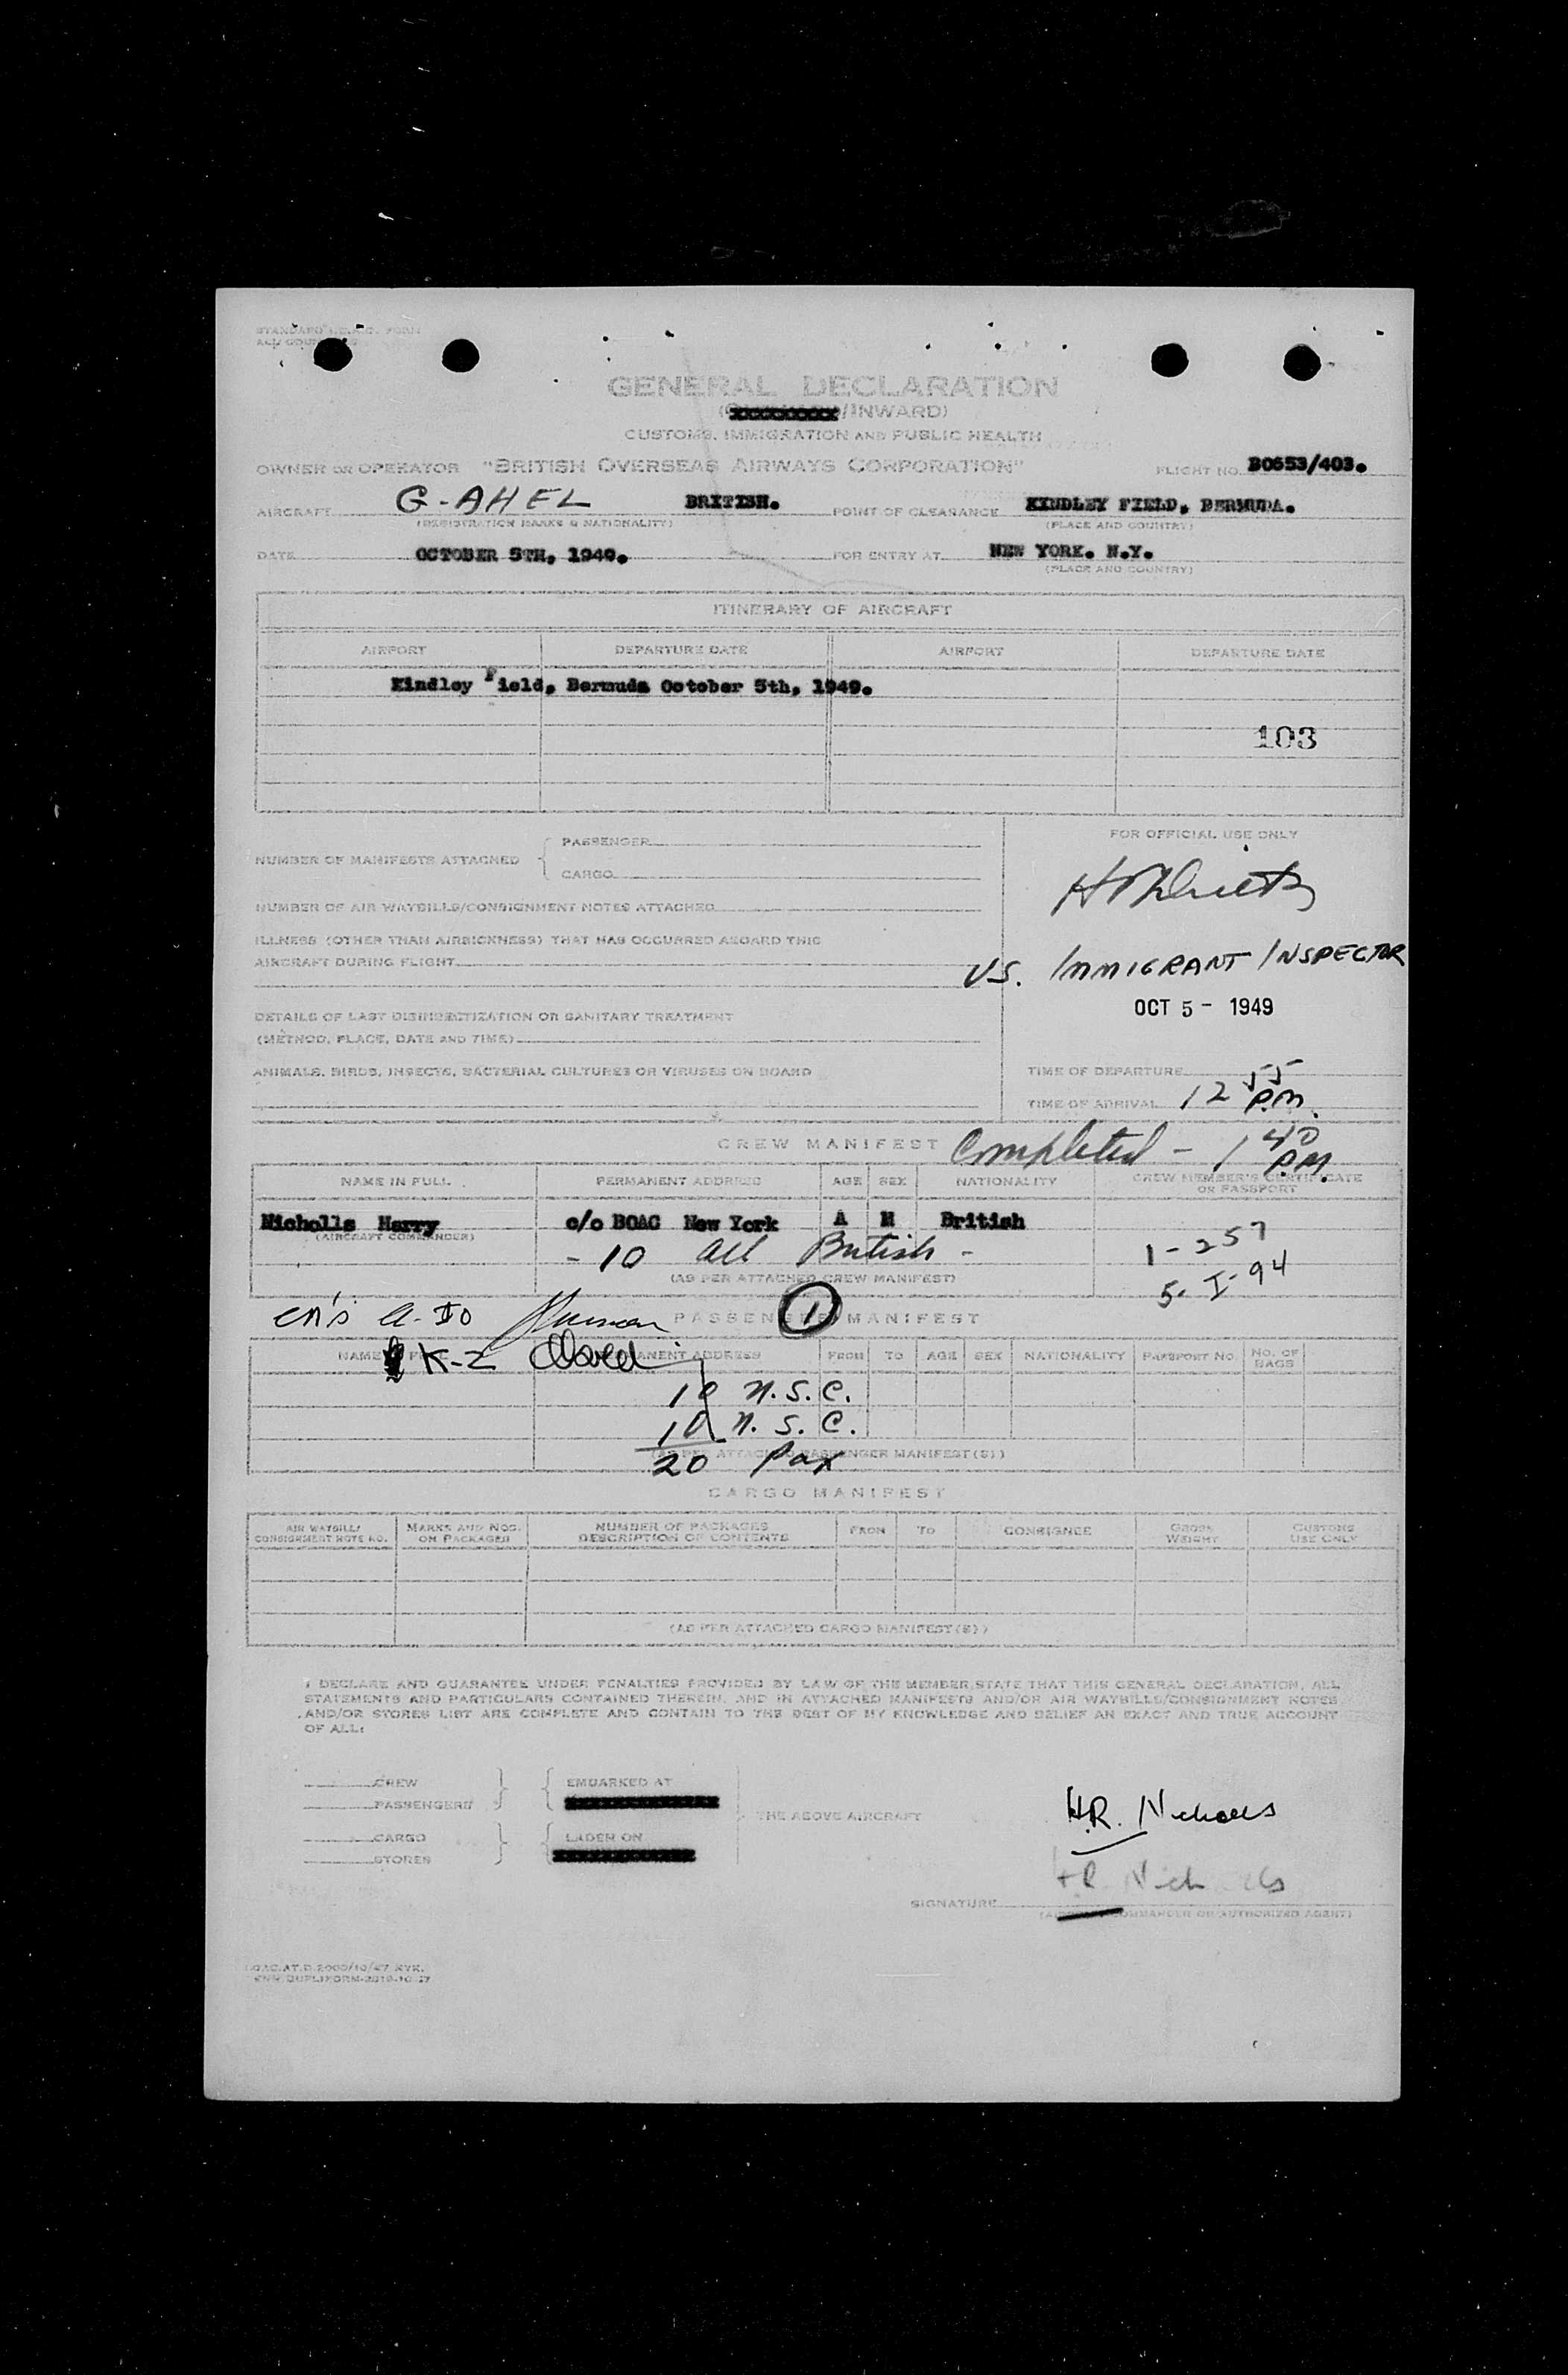 STANDARD I.C.A.O. FORM
GENERAL DECLARATION
/INWARD)
CUSTOMS, IMMIGRATION AND PUBLIC HEALTH
OWNER OR OPERATOR "BRITISH OVERSEAS AIRWAYS CORPORATION" FLIGHT NO. BO653/403.
AIRCRAFT G-AHEL BRITISH. POINT OF CLEARANCE KINDLEY FIELD, BERMUDA.
(REGISTRATION MARKS & NATIONALITY) (PLACE AND COUNTRY)
DATE OCTOBER 5TH, 1949. FOR ENTRY AT NEW YORK. N.Y.
(PLACE AND COUNTRY)
ITINERARY OF AIRCRAFT
AIRPORT DEPARTURE DATE AIRPORT DEPARTURE DATE
Kindley Field, Bermuda October 5th, 1949.
103
FOR OFFICIAL USE ONLY
NUMBER OF MANIFESTS ATTACHED { PASSENGER
CARGO
NUMBER OF AIR WAYBILLS/CONSIGNMENT NOTES ATTACHED
ILLNESS (OTHER THAN AIRSICKNESS) THAT HAS OCCURRED ABOARD THIS
AIRCRAFT DURING FLIGHT
U.S. IMMIGRANT INSPECTOR
OCT 5 - 1949
DETAILS OF LAST DISINSECTIZATION OR SANITARY TREATMENT
(METHOD, PLACE, DATE AND TIME)
ANIMALS, BIRDS, INSECTS, BACTERIAL CULTURES OR VIRUSES ON BOARD
TIME OF DEPARTURE
TIME OF ARRIVAL 12 55 P.M.
CREW MANIFEST Completed - 1 40 P.M.
NAME IN FULL PERMANENT ADDRESS AGE SEX NATIONALITY CREW MEMBER'S CERTIFICATE
OR PASSPORT
Nicholls Harry c/o BOAC New York A M British
(AIRCRAFT COMMANDER)
- 10 all British - 1-257
(AS PER ATTACHED CREW MANIFEST) 5-I-94
PASSENGER MANIFEST
1
K-Z
NAME ADDRESS FROM TO AGE SEX NATIONALITY PASSPORT NO. NO. OF
BAGS
10 N.S.C.
10 N.S.C.
20 Pax
(AS PER ATTACHED PASSENGER MANIFEST(S))
CARGO MANIFEST
AIR WAYBILL/
CONSIGNMENT NOTE NO. MARKS AND NOS.
ON PACKAGES NUMBER OF PACKAGES
DESCRIPTION OF CONTENTS FROM TO CONSIGNEE GROSS
WEIGHT CUSTOMS
USE ONLY
(AS PER ATTACHED CARGO MANIFEST(S))
I DECLARE AND GUARANTEE UNDER PENALTIES PROVIDED BY LAW OF THE MEMBER STATE THAT THIS GENERAL DECLARATION, ALL
STATEMENTS AND PARTICULARS CONTAINED THEREIN, AND IN ATTACHED MANIFESTS AND/OR AIR WAYBILLS/CONSIGNMENT NOTES
AND/OR STORES LIST ARE COMPLETE AND CONTAIN TO THE BEST OF MY KNOWLEDGE AND BELIEF AN EXACT AND TRUE ACCOUNT
OF ALL:
CREW
PASSENGERS
EMBARKED AT
CARGO
STORES
LADEN ON
THE ABOVE AIRCRAFT
H.R. Nicholls
SIGNATURE